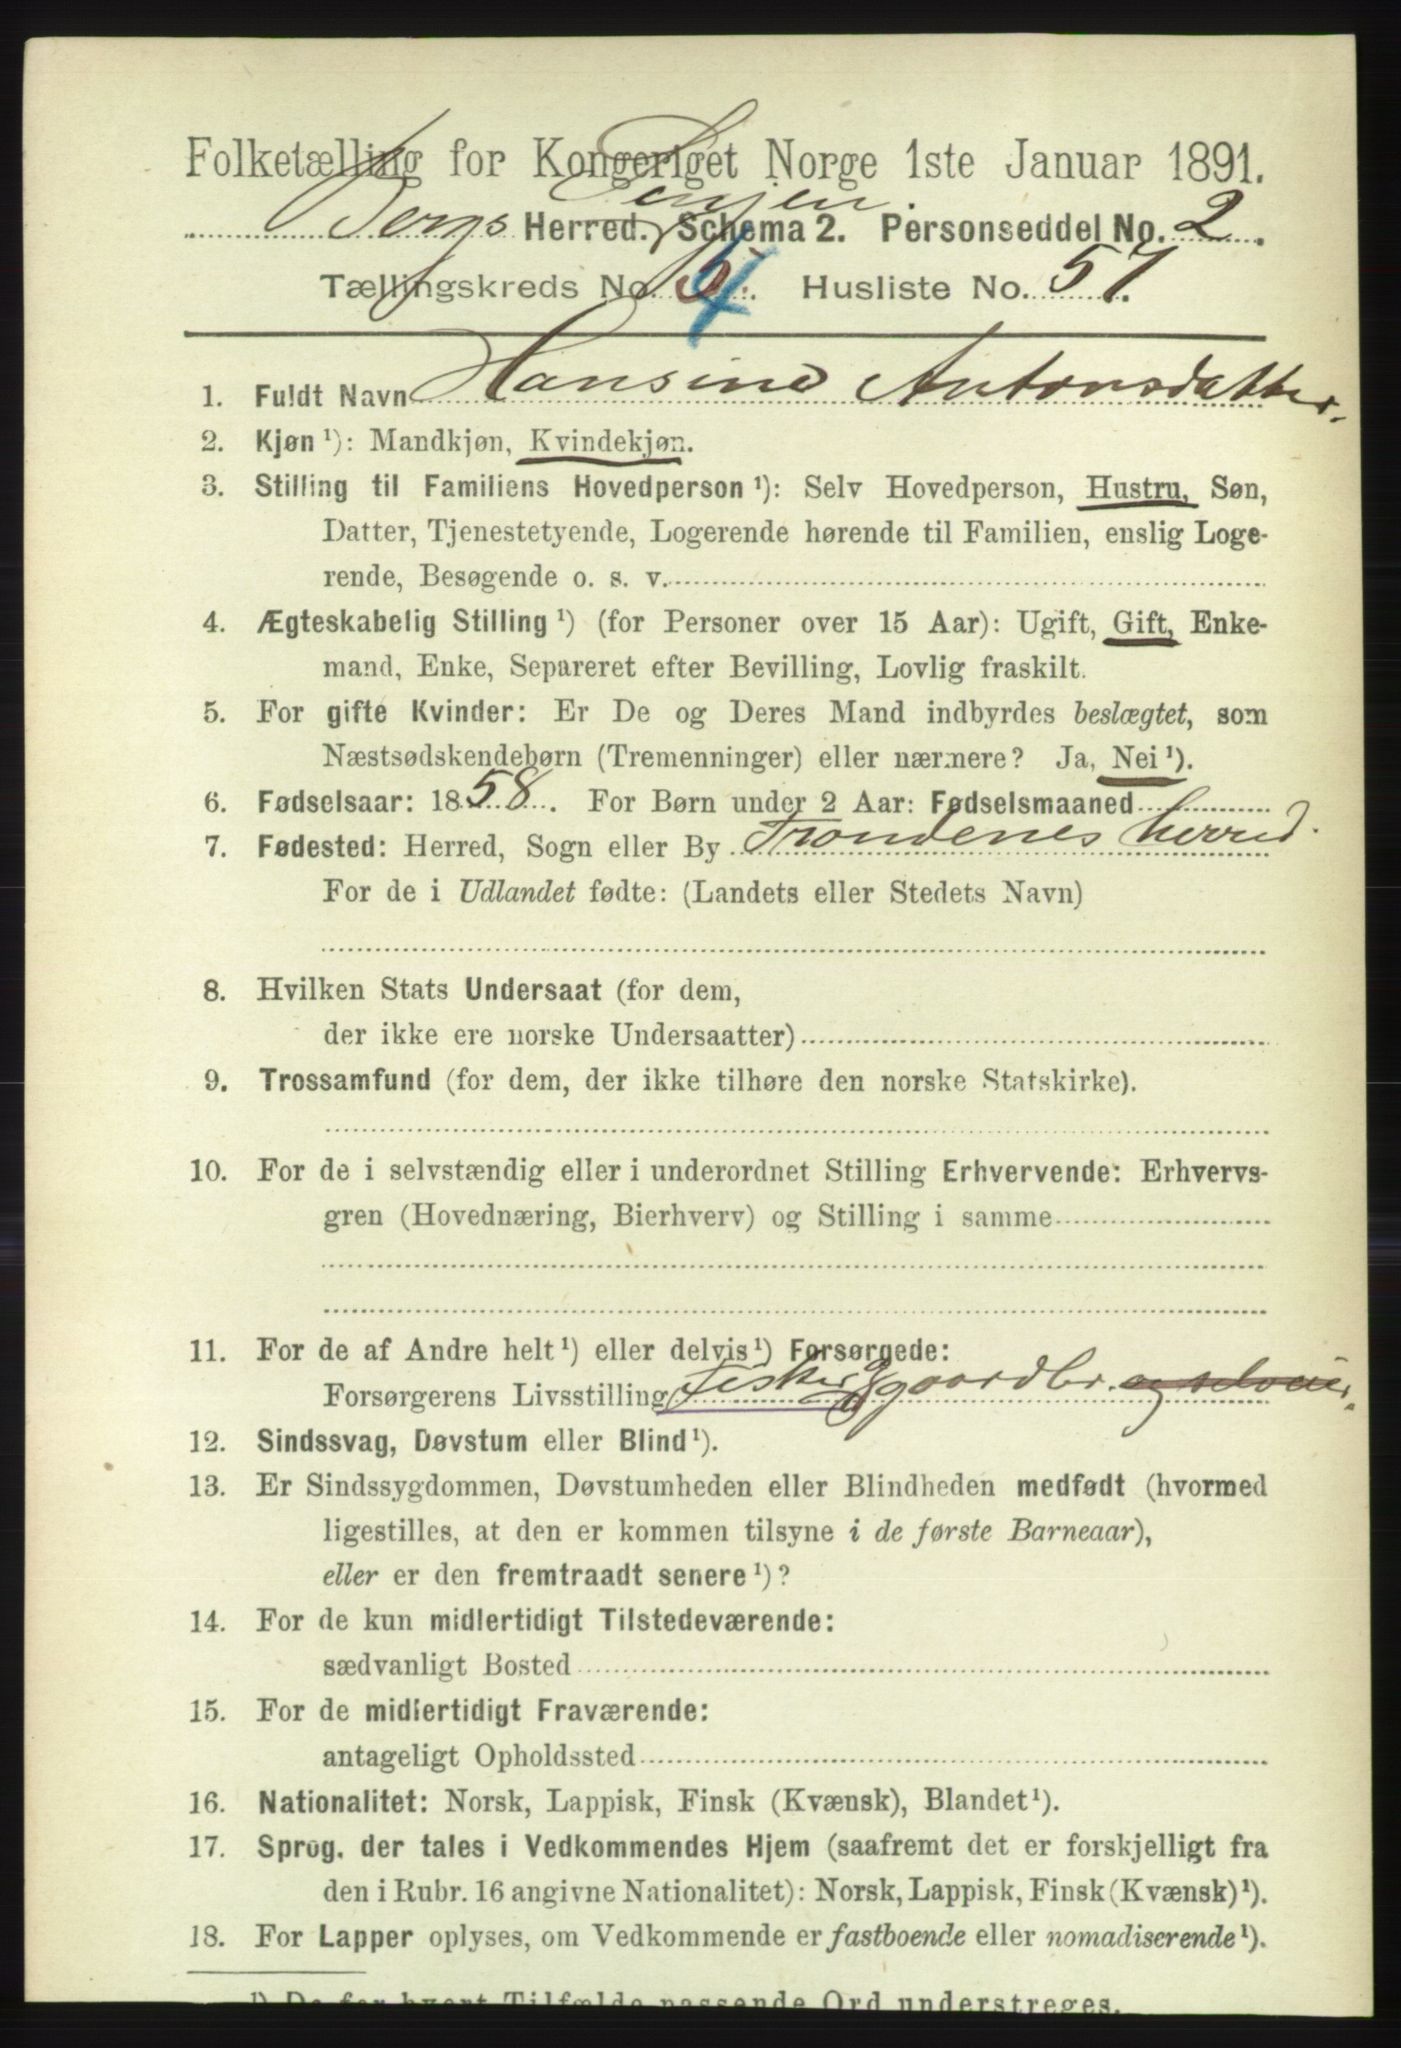 Folketælling for Kongeriget Norge 1ste Januar 1891.
Senjen.
Bergs Herred. Schema 2. Personseddel No. 2.
Tællingskreds No. 4. Husliste No. 57.
1. Fuldt Navn Hansine Antonsdatter.
2. Kjøn ¹): Mandkjøn, Kvindekjøn.
3. Stilling til Familiens Hovedperson ¹): Selv Hovedperson, Hustru, Søn,
Datter, Tjenestetyende, Logerende hørende til Familien, enslig Loge-
rende, Besøgende o. s. v.
4. Ægteskabelig Stilling ¹) (for Personer over 15 Aar): Ugift, Gift, Enke-
mand, Enke, Separeret efter Bevilling, Lovlig fraskilt.
5. For gifte Kvinder: Er De og Deres Mand indbyrdes beslægtet, som
Næstsødskendebørn (Tremenninger) eller nærmere? Ja, Nei ¹).
6. Fødselsaar: 1858. For Børn under 2 Aar: Fødselsmaaned
7. Fødested: Herred, Sogn eller By Trondenes herred.
For de i Udlandet fødte: (Landets eller Stedets Navn)
8. Hvilken Stats Undersaat (for dem,
der ikke ere norske Undersaatter)
9. Trossamfund (for dem, der ikke tilhøre den norske Statskirke).
10. For de i selvstændig eller i underordnet Stilling Erhvervende: Erhvervs-
gren (Hovednæring, Bierhverv) og Stilling i samme
11. For de af Andre helt ¹) eller delvis ¹) Forsørgede:
Forsørgerens Livsstilling Fisker og gaardbr. og selveier.
12. Sindssvag, Døvstum eller Blind ¹).
13. Er Sindssygdommen, Døvstumheden eller Blindheden medfødt (hvormed
ligestilles, at den er kommen tilsyne i de første Barneaar),
eller er den fremtraadt senere ¹)?
14. For de kun midlertidigt Tilstedeværende:
sædvanligt Bosted
15. For de midlertidigt Fraværende:
antageligt Opholdssted
16. Nationalitet: Norsk, Lappisk, Finsk (Kvænsk), Blandet ¹).
17. Sprog, der tales i Vedkommendes Hjem (saafremt det er forskjelligt fra
den i Rubr. 16 angivne Nationalitet): Norsk, Lappisk, Finsk (Kvænsk) ¹).
18. For Lapper oplyses, om Vedkommende er fastboende eller nomadiserende ¹).
¹) De for hvert Tilfælde passende Ord understreges.